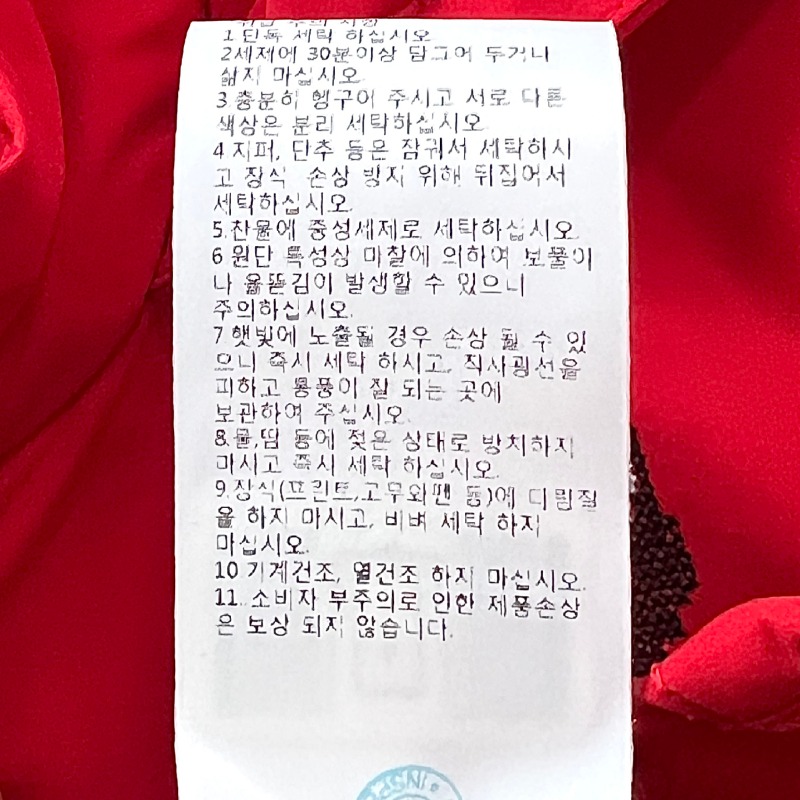 취급 주의 사항
1 단독 세탁 하십시오.
2세제에 30분이상 담그어 두거나
삶지 마십시오.
3.충분히 헹구어 주시고 서로 다른
색상은 분리 세탁하십시오.
4 지퍼, 단추 등은 잠궈서 세탁하시
고 장식 손상 방지 위해 뒤집어서
세탁하십시오.
5.찬물에 중성세제로 세탁하십시오.
6 원단 특성상 마찰에 의하여 보풀이
나 올뜯김이 발생할 수 있으니
주의하십시오.
7.햇빛에 노출될 경우 손상 될 수 있
으니 즉시 세탁 하시고, 직사광선을
피하고 통풍이 잘 되는 곳에
보관하여 주십시오.
8.물,땀 등에 젖은 상태로 방치하지
마시고 즉시 세탁 하십시오.
9.장식(프린트,고무와펜 등)에 다림질
을 하지 마시고, 비벼 세탁 하지
마십시오.
10 기계건조, 열건조 하지 마십시오.
11. 소비자 부주의로 인한 제품손상
은 보상 되지 않습니다.